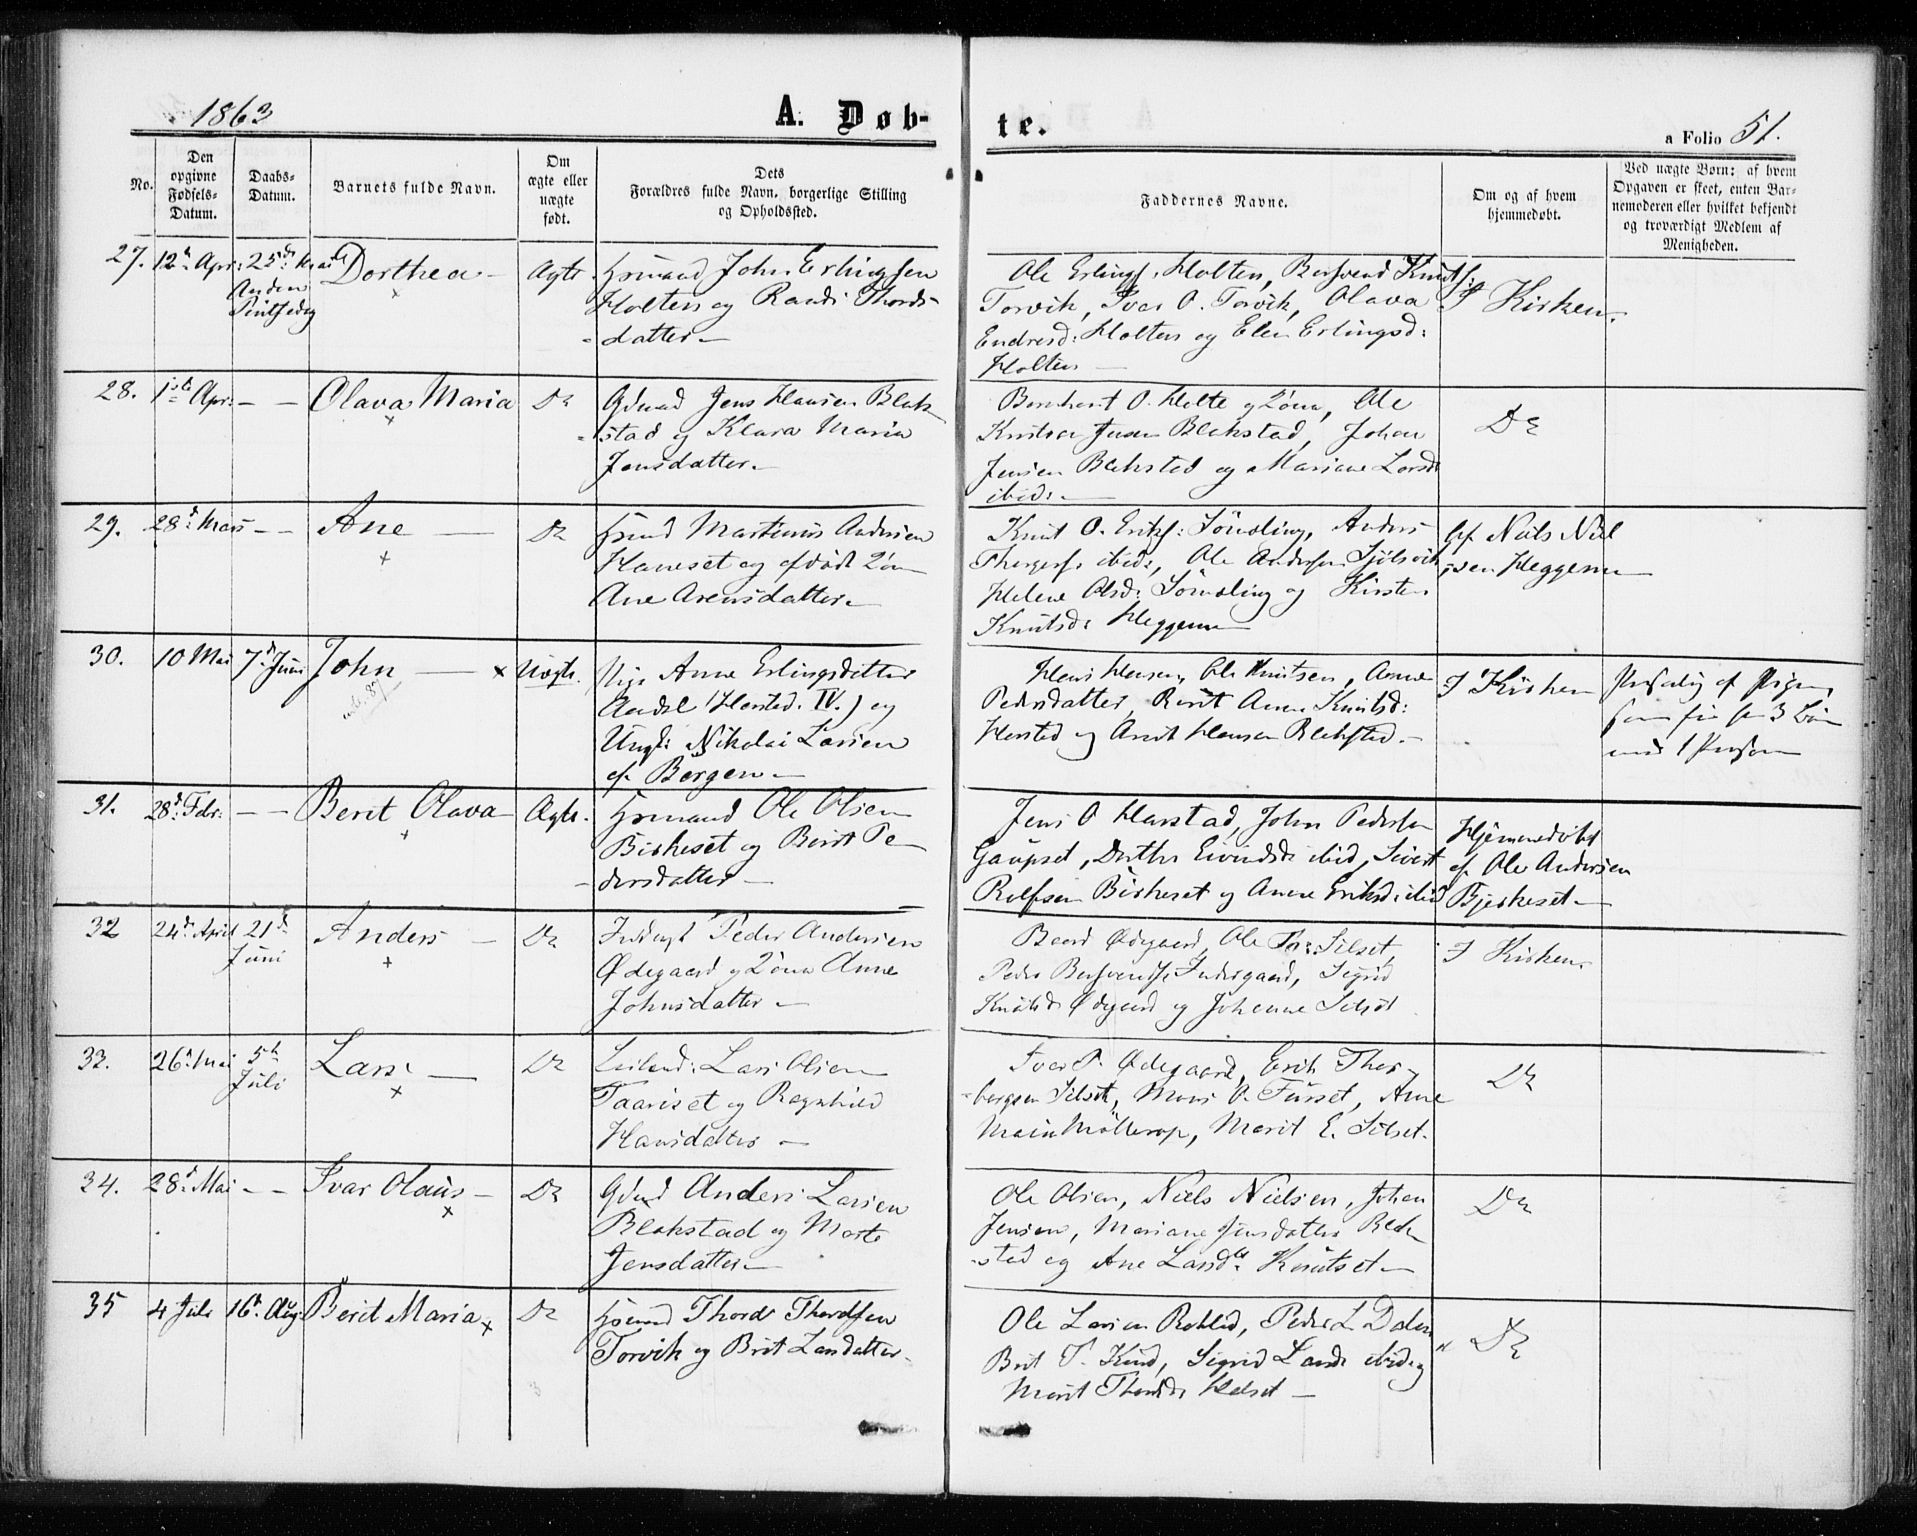 1863
A. Døb-
te.
a Folio 51.
No.
Den
opgivne
Fødsels-
Datum.
Daabs-
Datum.
Barnets fulde Navn.
Om
ægte eller
uægte
født.
Dets
Forældres fulde Navn, borgerlige Stilling
og Opholdssted.
Faddernes Navne.
Om og af hvem
hjemmedøbt.
Ved uægte Børn: af hvem
Opgaven er skeet, enten Bar-
nemoderen eller hvilket bekjendt
og troværdigt Medlem af
Menigheden.
27. 12te Apr: 25de Mai
Anden
Pintsedag
Dorthea
Ægte
Hsmand John Erlingsen
Holten og Randi Thords-
datter
Ole Erlings: Holten, Bersvend Knuts:
Torvik, Ivar O. Torvik, Olava
Endresd: Holten og Elen Erlingsd:
Holten
I Kirken.
28. 1ste Apr: — —
Olava Maria
Do
Gdmad Jens Hansen Blak
stad og Klara Maria
Jensdatter
O. Holte og Kona, Ole
Knutsen Blakstad, Johan
Jensen Blakstad og Mariane Larsd:
ibid:
Do
29. 28d Mars — —
Ane
Do
Hsmd Martinus Andersen
Haneset og afdøde Kone
Ane Arensdatter
Knut O. Eriks: Sønsling, Anders
ibid:, Ole Andersen Sjølsvik
Helene Olsd: og Kirsten
Knutsd: Heggem
af Niels Niel
sen Heggem
30. 10 Mai 7d Juni
John
Uægte.
Pige Anne Erlingsdatter
(Harstad. IV.) og
Ungk: Nikolai Larsen
af Bergen
Hans Hansen, Ole Knutsen, Anne
Pedersdatter, Berit Anne Knutsd:
Harstad og Hansen Blakstad.
I Kirken
af Pigen
3 Børn
med 1 Person
31. 28d: Febr: — —
Berit Olava
Ægte.
Hsmand Ole Olsen
Birkeset og Berit Pe
dersdatter
Jens O Harstad, John Pedersen
Gaupset, Dorthe Eivindsd: ibid, Sivert
Rolfsen Birkeset og Anne Eriksd: ibid
Hjemmedøbt
af Ole Andersen
Bjerkeset
32 24d: April 21d
Juni
Anders
Do
Peder Andersen
Ødegaard og Kone Anne
Johnsdatter
Baard Ødegaard, Ole Silset,
Peder Bersvends: Indergaard, Sigrid
Knutsd: Ødegaard og Johanne Silset
I Kirken.
33. 26d Mai 5te
Juli
Lars
Do
Leiland: Lars Olsen
Taariset og Ragnhild
Hansdatter
Ivar P. Ødegaard, Erik Thor-
bergsen Silset, Mons O. Furset, Ane
Møllerop, Marit E. Silset.
Do
34. 28d Mai — —
Ivar Olaus
Do
Gdmd Anders Larsen
Blakstad og Marte
Jensdatter
Ole Olsen, Niels Nielsen, Johan
Jensen, Mariane Jensdatter Blak
stad og Ane Larsdtr: Knutset
Do
35 4 Juli 16d. Aug
Berit Maria
Do
Hsmd Thord Thordsen
Torvik og Brit Larsdatter
Ole Larsen, Peder L Dalen
Brit T. , Sigrid Larsd: ibid og
Marit Thordsd: Helset
Do